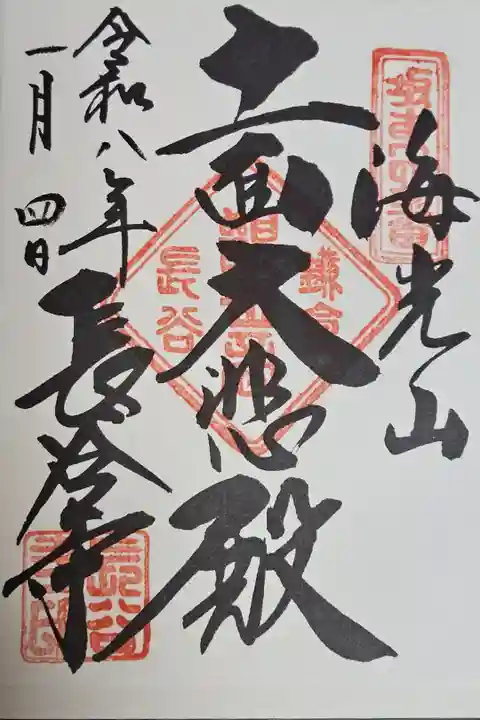 海光山
十一面大悲殿
令和八年
一月四日
長谷寺
鎌倉
長谷